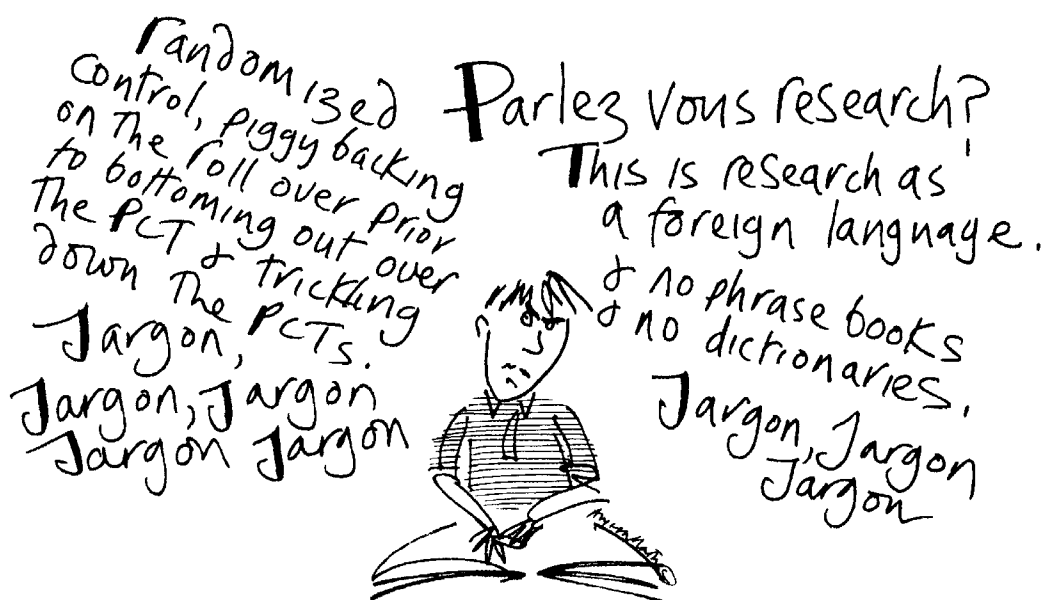 randomized
control, piggy backing
on the roll over prior
to bottoming out over
the PCT & trickling
down the PCTs.
Jargon,
Jargon, Jargon
Jargon Jargon
Parlez vous research?
This is research as
a foreign language.
& no phrase books
& no dictionaries.
Jargon, Jargon
Jargon